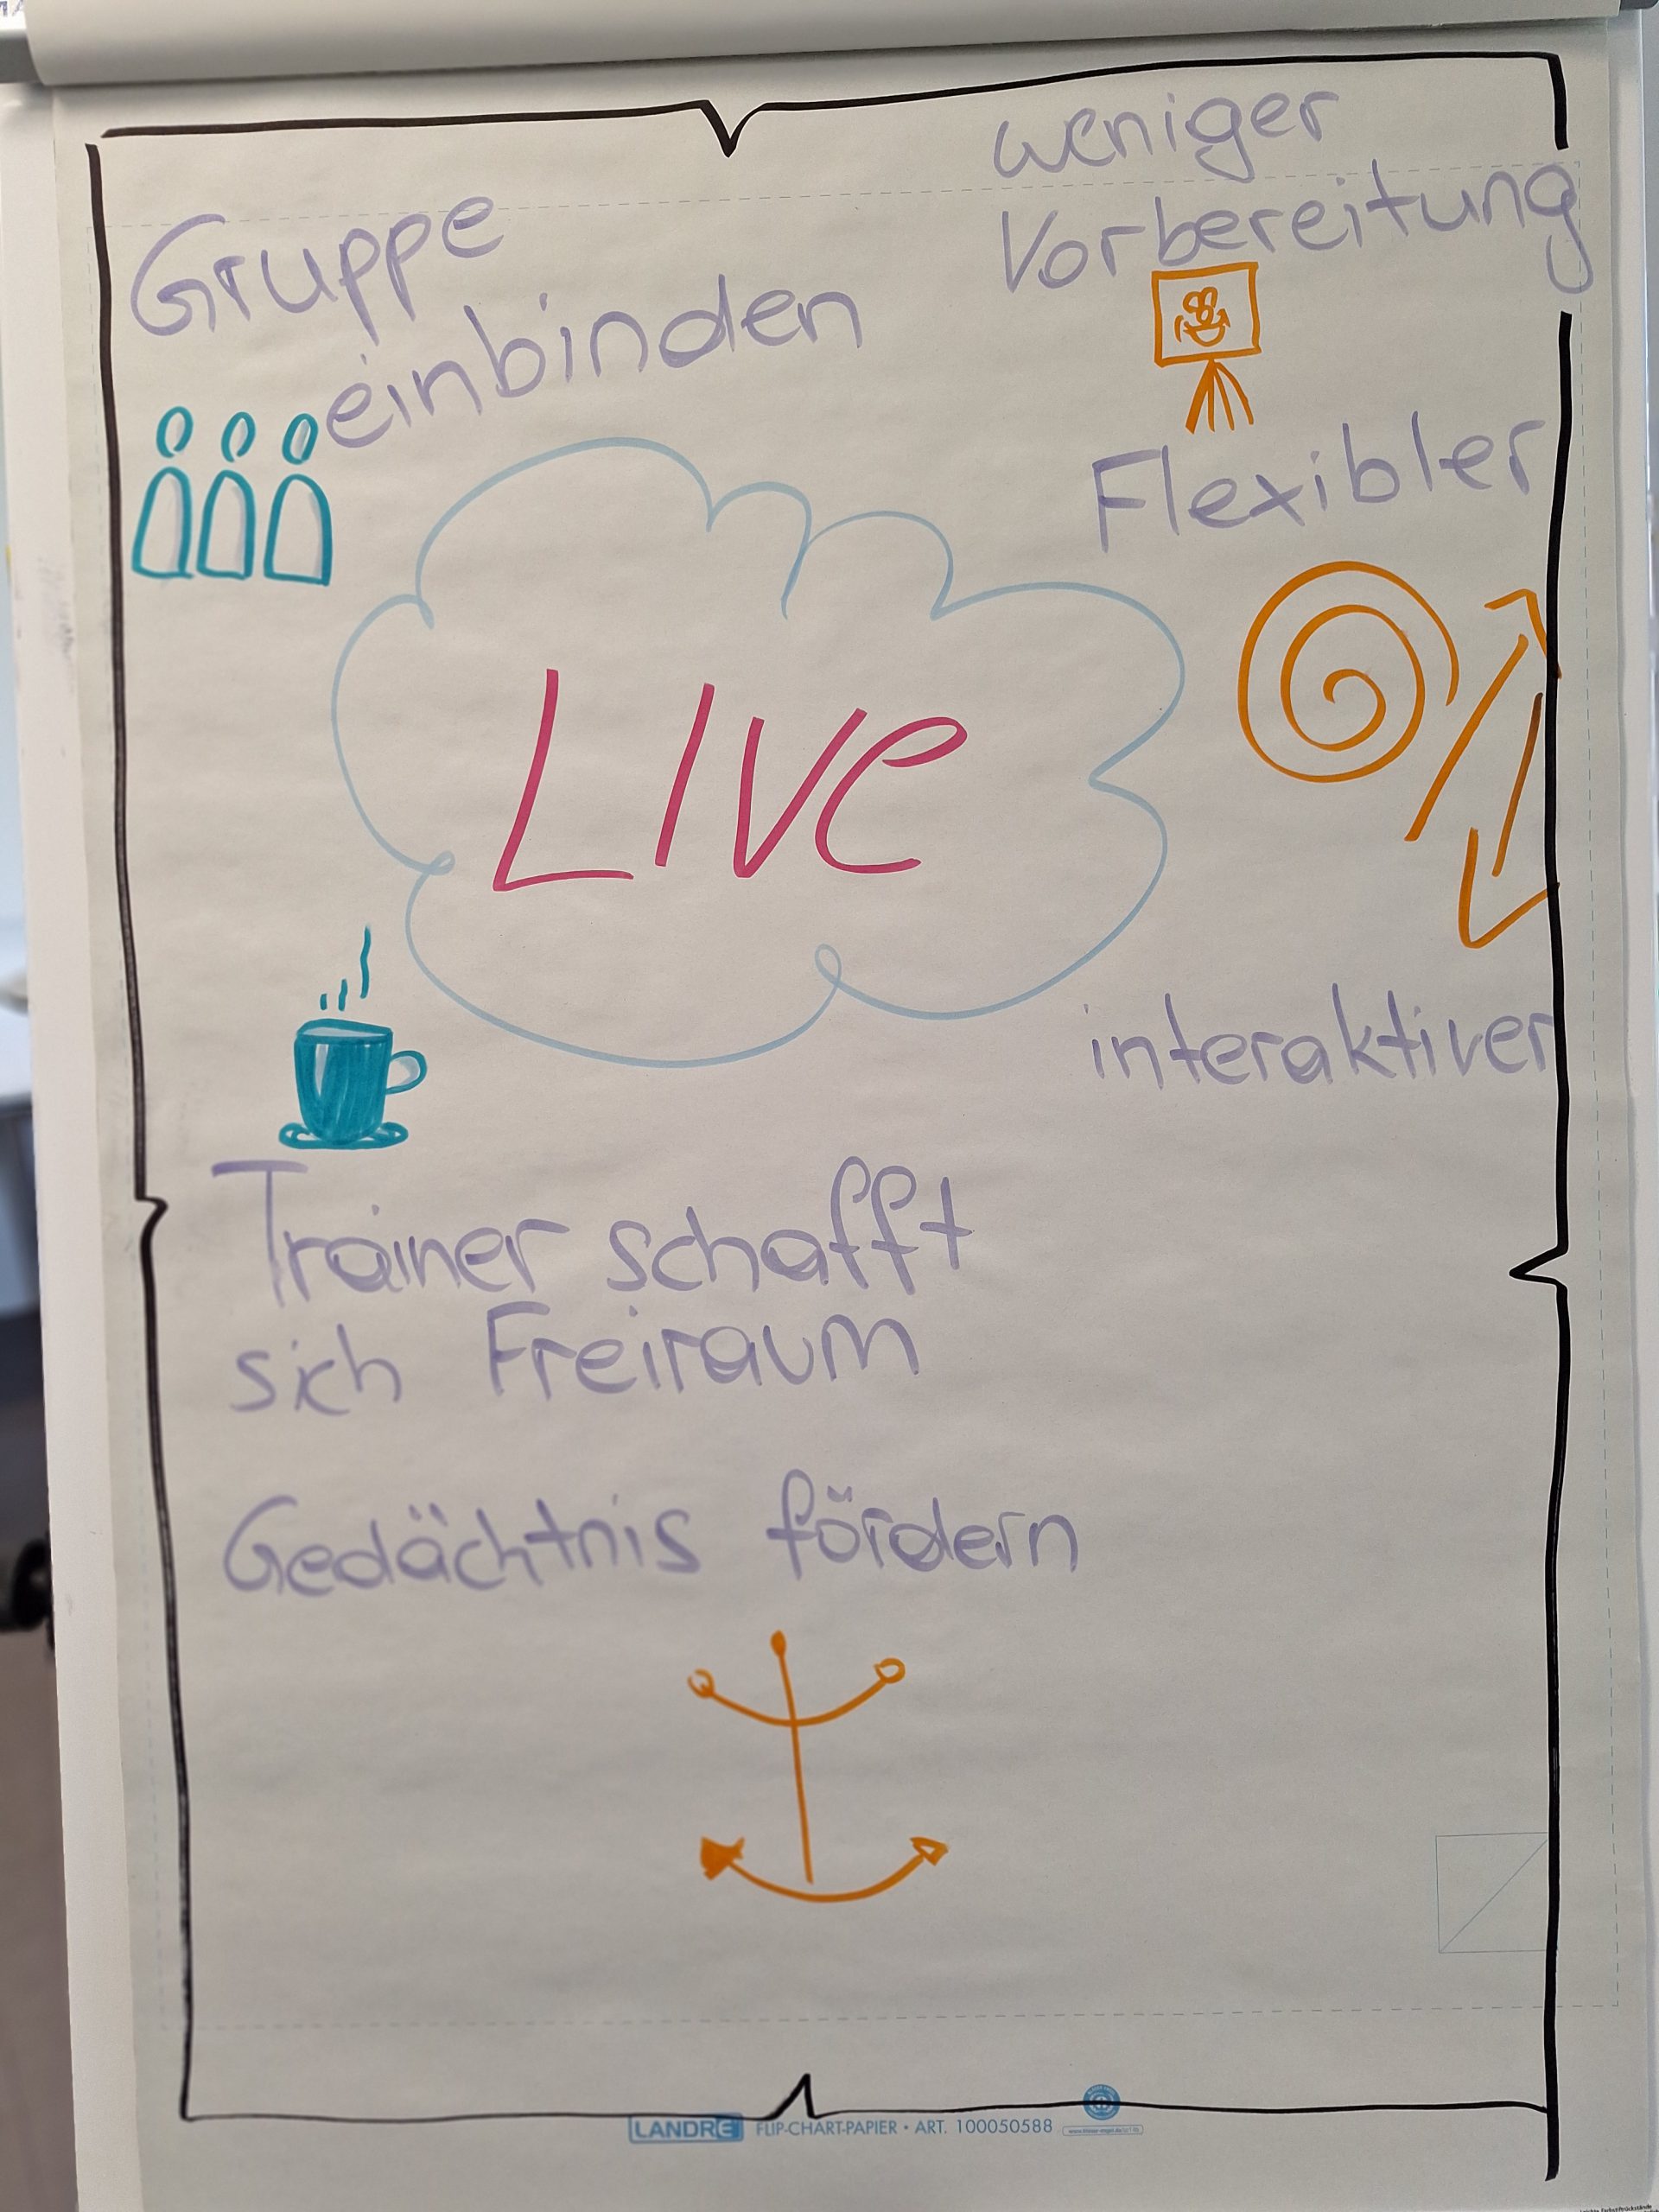 weniger
Vorbereitung
Gruppe
einbinden
Flexibler
LIVe
interaktiver
Trainer schafft
sich Freiraum
Gedächtnis fördern
LANDRÉ FLIP-CHART-PAPIER • ART. 100050588